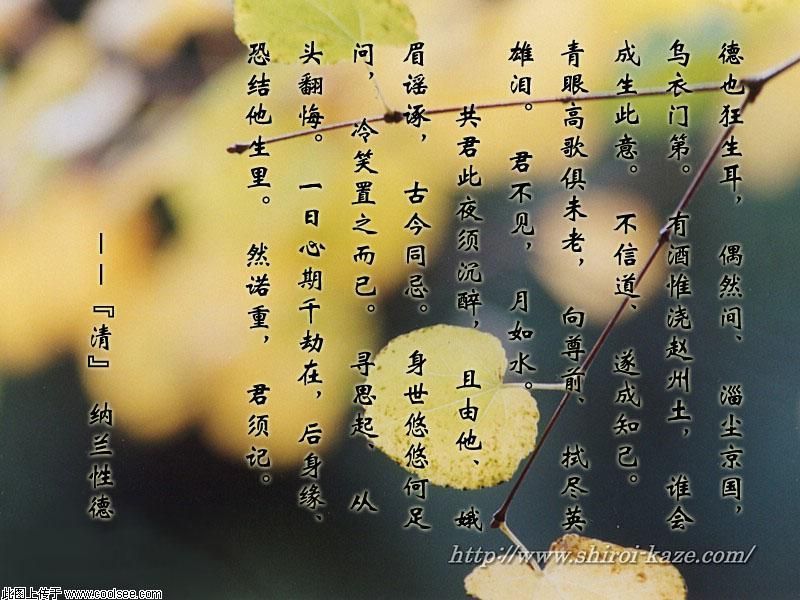 德也狂生耳，偶然间、淄尘京国，
乌衣门第。有酒惟浇赵州土，谁会
成生此意。不信道、遂成知己。
青眼高歌俱未老，向尊前、拭尽英
雄泪。君不见，月如水。
共君此夜须沉醉，且由他、娥
眉谣诼，古今同忌。身世悠悠何足
问，冷笑置之而已。寻思起、从
头翻悔。一日心期千劫在，后身缘、
恐结他生里。然诺重，君须记。
——『清』 纳兰性德
http://www.shiroi-kaze.com/
此图上传于 www.coolsee.com